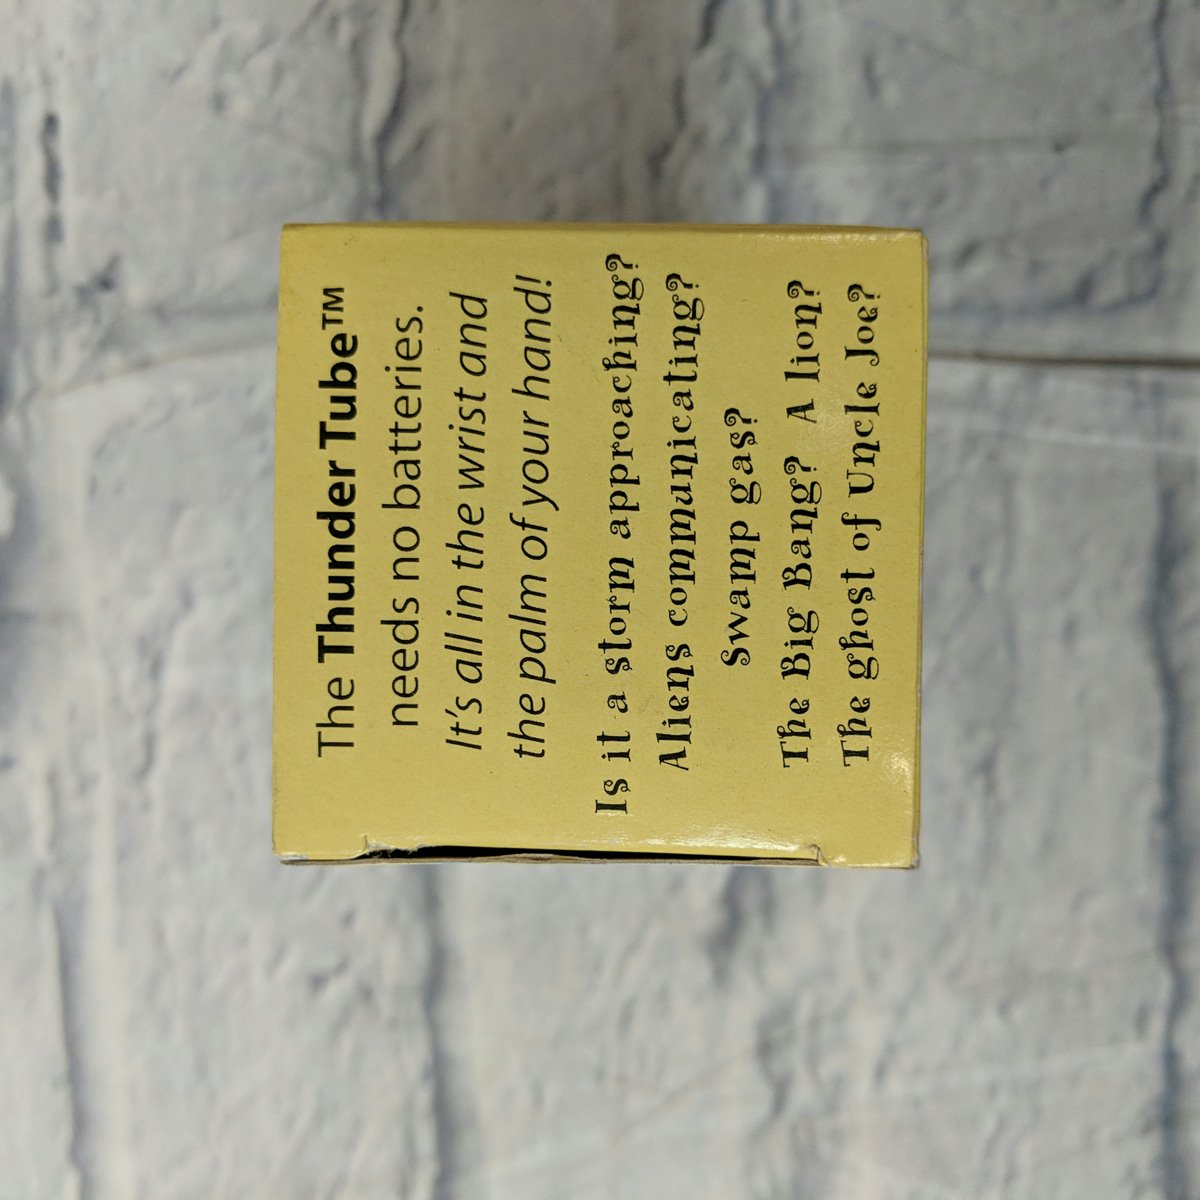 The Thunder Tube™
needs no batteries.
It's all in the wrist and
the palm of your hand!
Is it a storm approaching?
Aliens communicating?
Swamp gas?
The Big Bang? A lion?
The ghost of Uncle Joe?